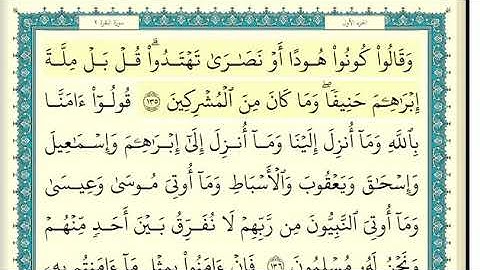 الجزء الأول
سورة البقرة ٢
وَقَالُوا۟ كُونُوا۟ هُودًا أَوْ نَصَـٰرَىٰ تَهْتَدُوا۟ ۗ قُلْ بَلْ مِلَّةَ
إِبْرَٰهِـۧمَ حَنِيفًا ۖ وَمَا كَانَ مِنَ ٱلْمُشْرِكِينَ ١٣٥ قُولُوٓا۟ ءَامَنَّا
بِٱللَّهِ وَمَآ أُنزِلَ إِلَيْنَا وَمَآ أُنزِلَ إِلَىٰٓ إِبْرَٰهِـۧمَ وَإِسْمَـٰعِيلَ
وَإِسْحَـٰقَ وَيَعْقُوبَ وَٱلْأَسْبَاطِ وَمَآ أُوتِىَ مُوسَىٰ وَعِيسَىٰ
وَمَآ أُوتِىَ ٱلنَّبِيُّونَ مِن رَّبِّهِمْ لَا نُفَرِّقُ بَيْنَ أَحَدٍ مِّنْهُمْ
وَنَحْنُ لَهُۥ مُسْلِمُونَ ١٣٦ فَإِنْ ءَامَنُوا۟ بِمِثْلِ مَآ ءَامَنتُم بِهِۦ